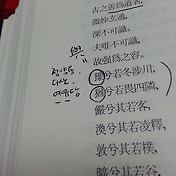 古之善爲道者,
微妙玄通,
深不可識.
夫唯不可識,
故强爲之容:
與
豫兮若冬涉川,
정약용
다산
여유당
猶兮若畏四隣,
儼兮其若客,
渙兮其若凌釋,
敦兮其若樸,
曠兮其若谷,